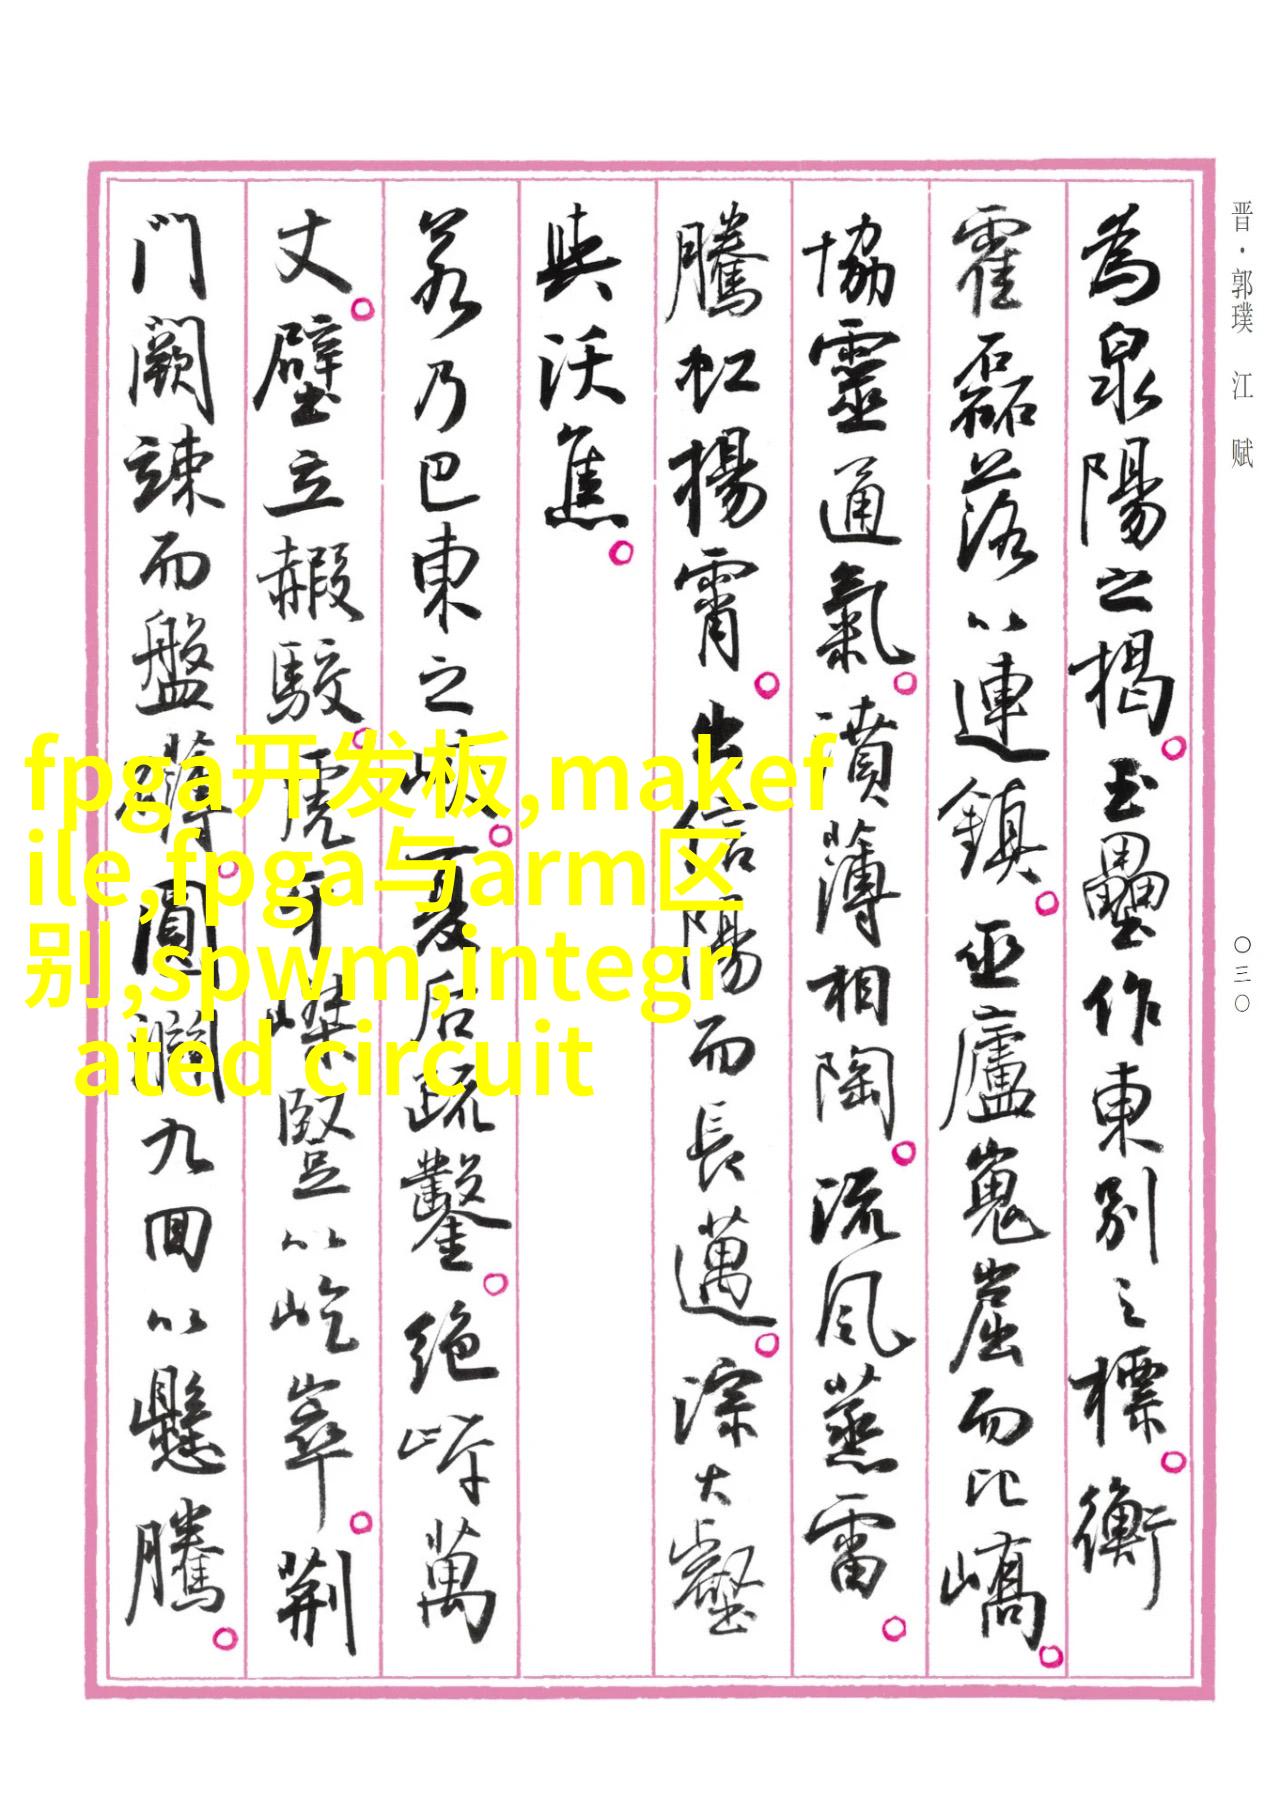 晋·郭璞 江 赋
為泉陽之揭。玉壘作東別之標。衡
霍磊落以連鎮。巫廬嵬崫而比嶠。
協靈通氣。濆薄相陶。流風蒸雷。
騰虹揚霄。出信陽而長邁。淙大壑
與沃焦。
若乃巴東之峽。夏后疏鑿。絕岸萬
丈。壁立赮駮。虎牙嵥豎以屹崒。荊
門闕竦而盤礴。圓淵九回以懸騰。
〇三〇
fpga开发板,makef
ile,fpga与arm区
别,spwm,integr
ated circuit